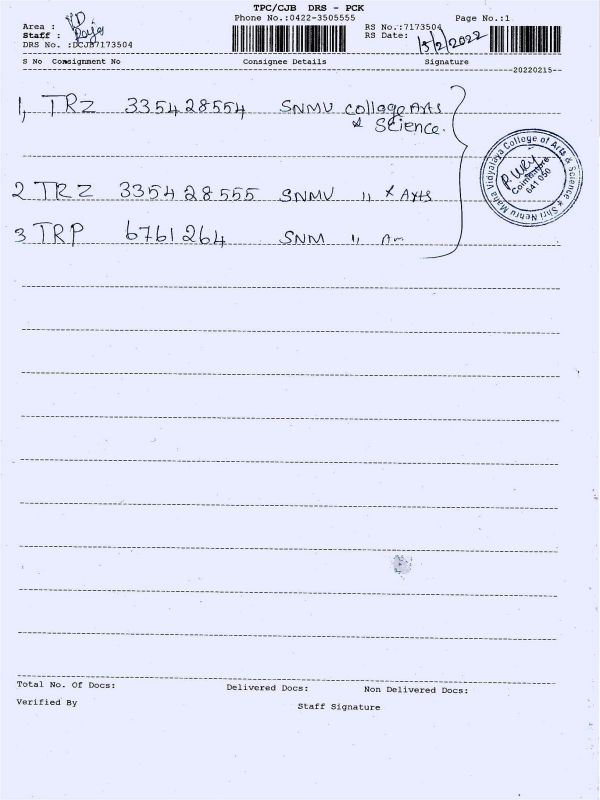 TPC/CJB DRS - PCK
Phone No.:0422-3505555
Page No.:1
Area : KD
Staff : Raja
DRS No. :DCJB7173504
RS No.:7173504
RS Date: 15/2/2022
S No Consignment No Consignee Details Signature
--20220215--
1, TRZ 335428554 SNMV College Arts
& Science.
2 TRZ 335428555 SNMV 〃 & Arts
3 TRP 6761264 SNM 〃
Shri Nehru Maha Vidyalaya College of Arts & Science *
Coimbatore
641 050
Total No. Of Docs: Delivered Docs: Non Delivered Docs:
Verified By Staff Signature